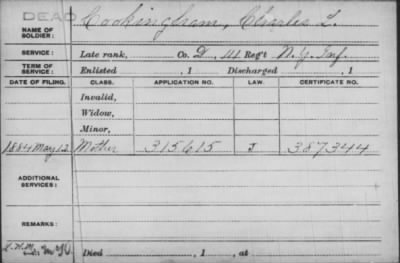 DEAD
NAME OF SOLDIER: Cookingham, Charles L.
SERVICE: Late rank, Co. D, 44 Reg't N.Y. Inf.
TERM OF SERVICE: Enlisted , 1 Discharged , 1
DATE OF FILING. CLASS. APPLICATION NO. LAW. CERTIFICATE NO.
Invalid,
Widow,
Minor,
1884 May 12 Mother 315615 J 387344
ADDITIONAL SERVICES:
REMARKS:
Died , 1 , at